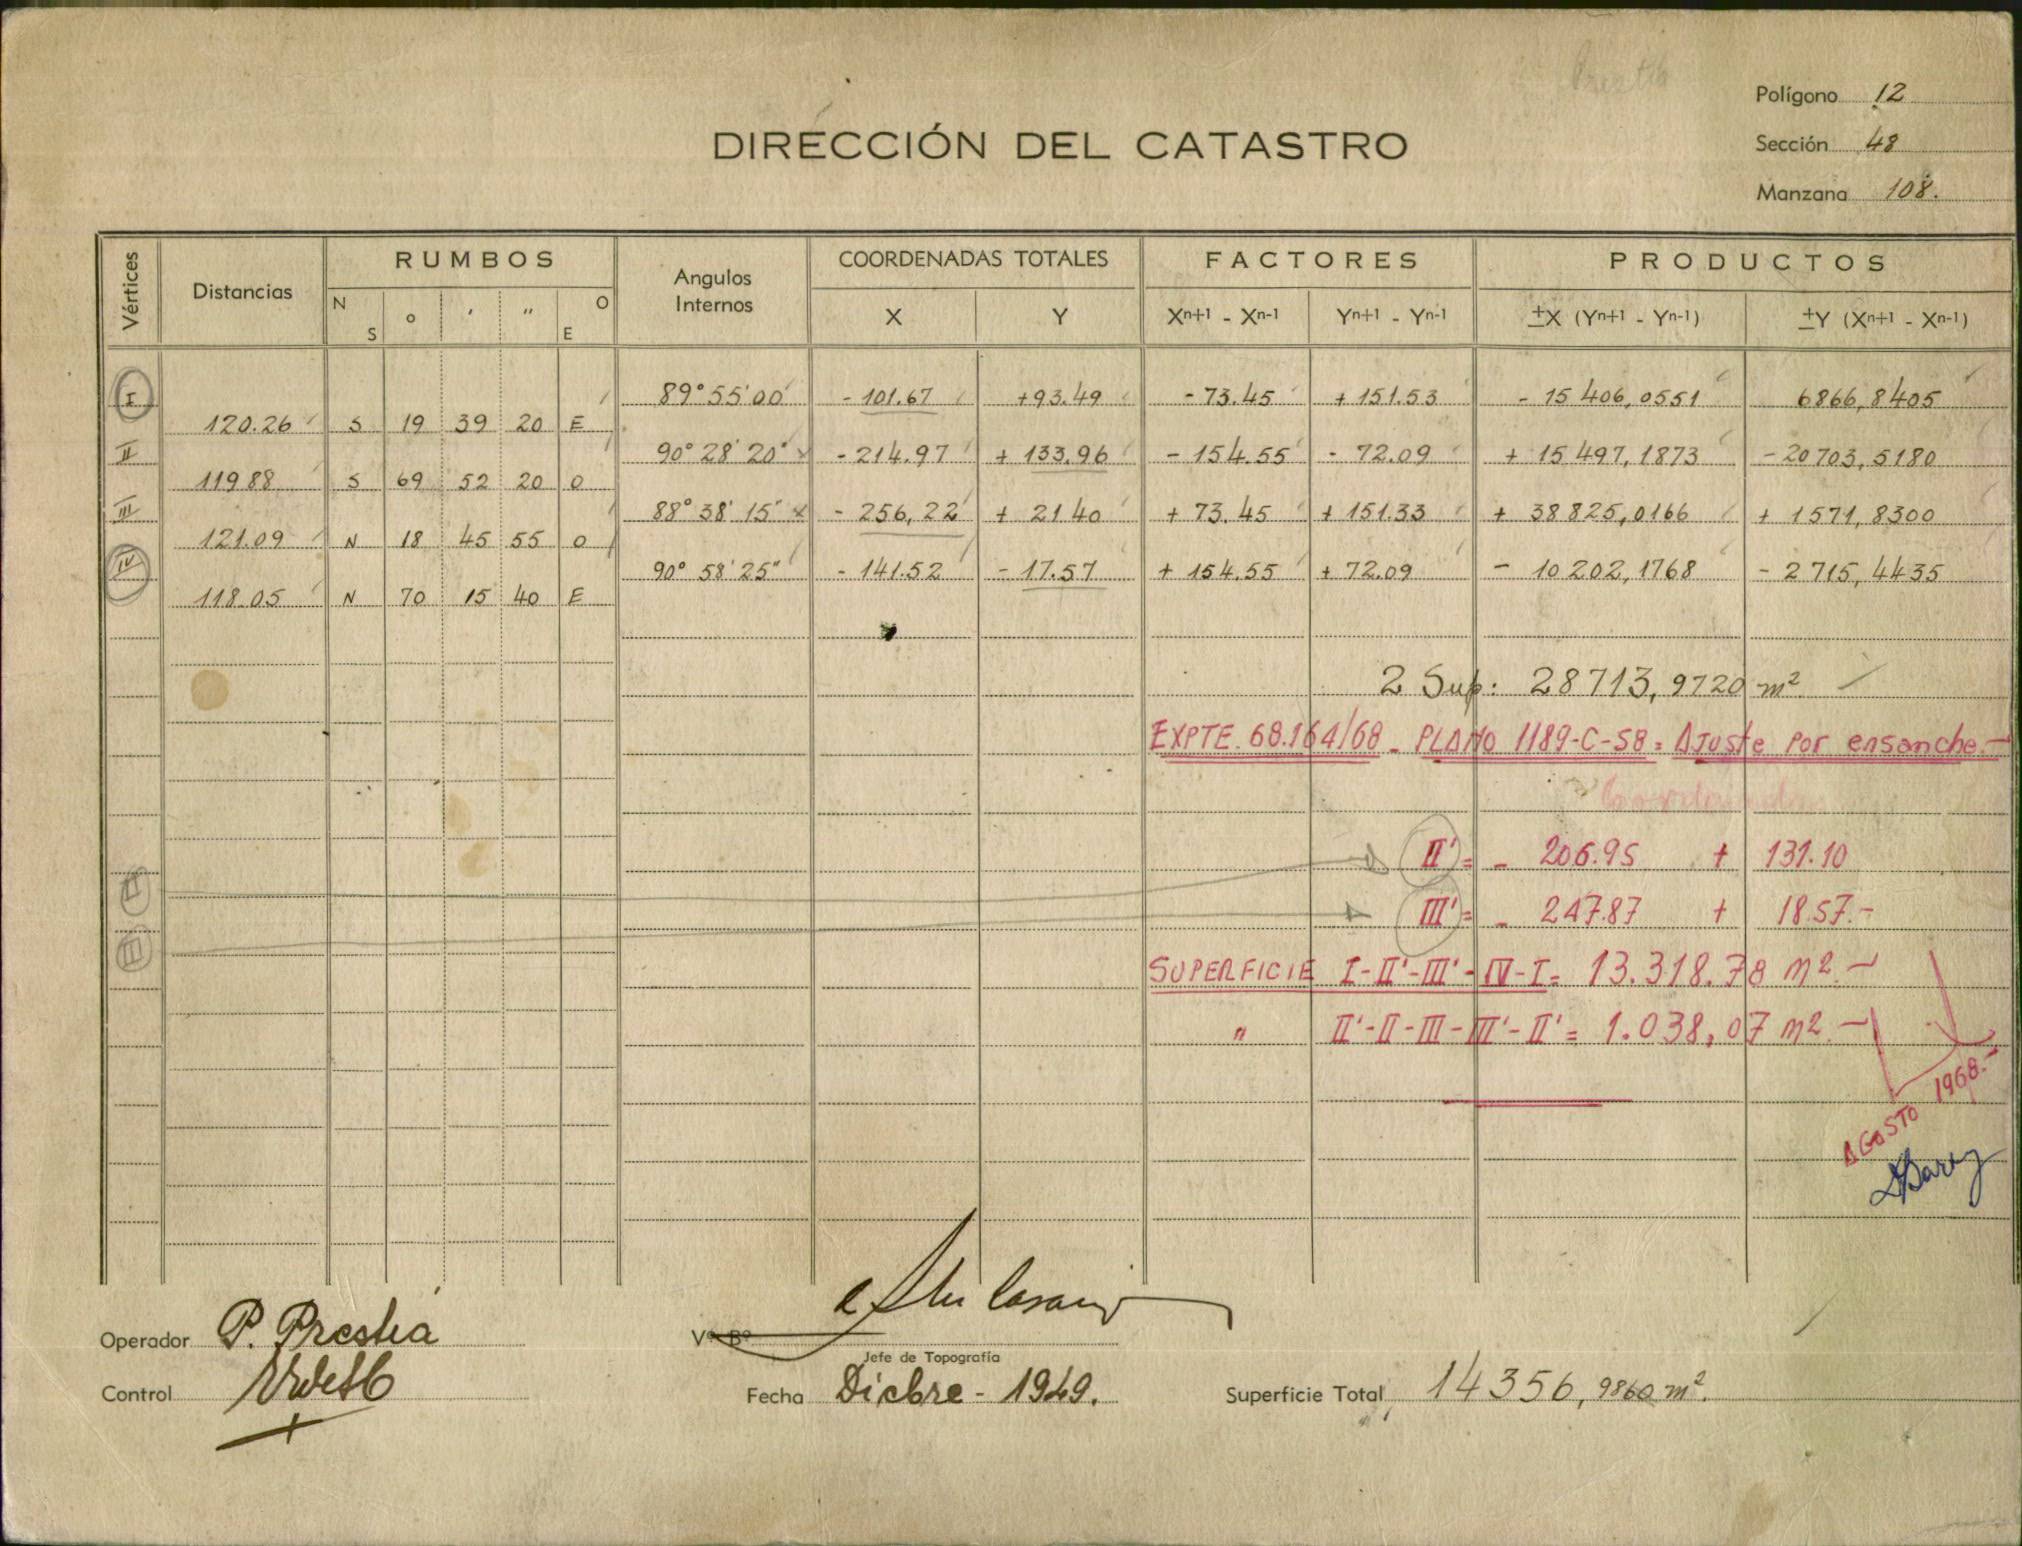 Polígono 12
DIRECCIÓN DEL CATASTRO
Sección 48
Manzana 108.
Vértices Distancias RUMBOS Angulos Internos COORDENADAS TOTALES FACTORES PRODUCTOS
N S ° ' " O E X Y Xn+1 - Xn-1 Yn+1 - Yn-1 ±X (Yn+1 - Yn-1) ±Y (Xn+1 - Xn-1)
I 89° 55' 00 - 101.67 +93.49 - 73.45 + 151.53 - 15 406,0551 6866,8405
120.26 S 19 39 20 E
II 90° 28' 20" - 214.97 + 133.96 - 154.55 - 72.09 + 15 497,1873 - 20 703,5180
119 88 S 69 52 20 O
III 88° 38' 15" - 256,22 + 21 40 + 73.45 + 151.33 + 38 825,0166 + 1571,8300
121.09 N 18 45 55 O
IV 90° 58' 25" - 141.52 - 17.57 + 154.55 + 72.09 - 10 202,1768 - 2 715,4435
118.05 N 70 15 40 E
2 Sup: 28713,9720 m²
EXPTE. 68.164/68 - PLANO 1189-C-58 = AJuste por ensanche.-
II' = - 206.95 + 131.10
III' = - 247.87 + 18.57.-
SUPERFICIE I-II'-III'-IV-I = 13.318.78 m².-
" II'-II-III-III'-II' = 1.038,07 m².-
II
III
AGOSTO 1968.-
Operador P. Prestia
Vº Bº
Jefe de Topografía
Control
Fecha Dicbre - 1949.
Superficie Total 14356,9860 m².